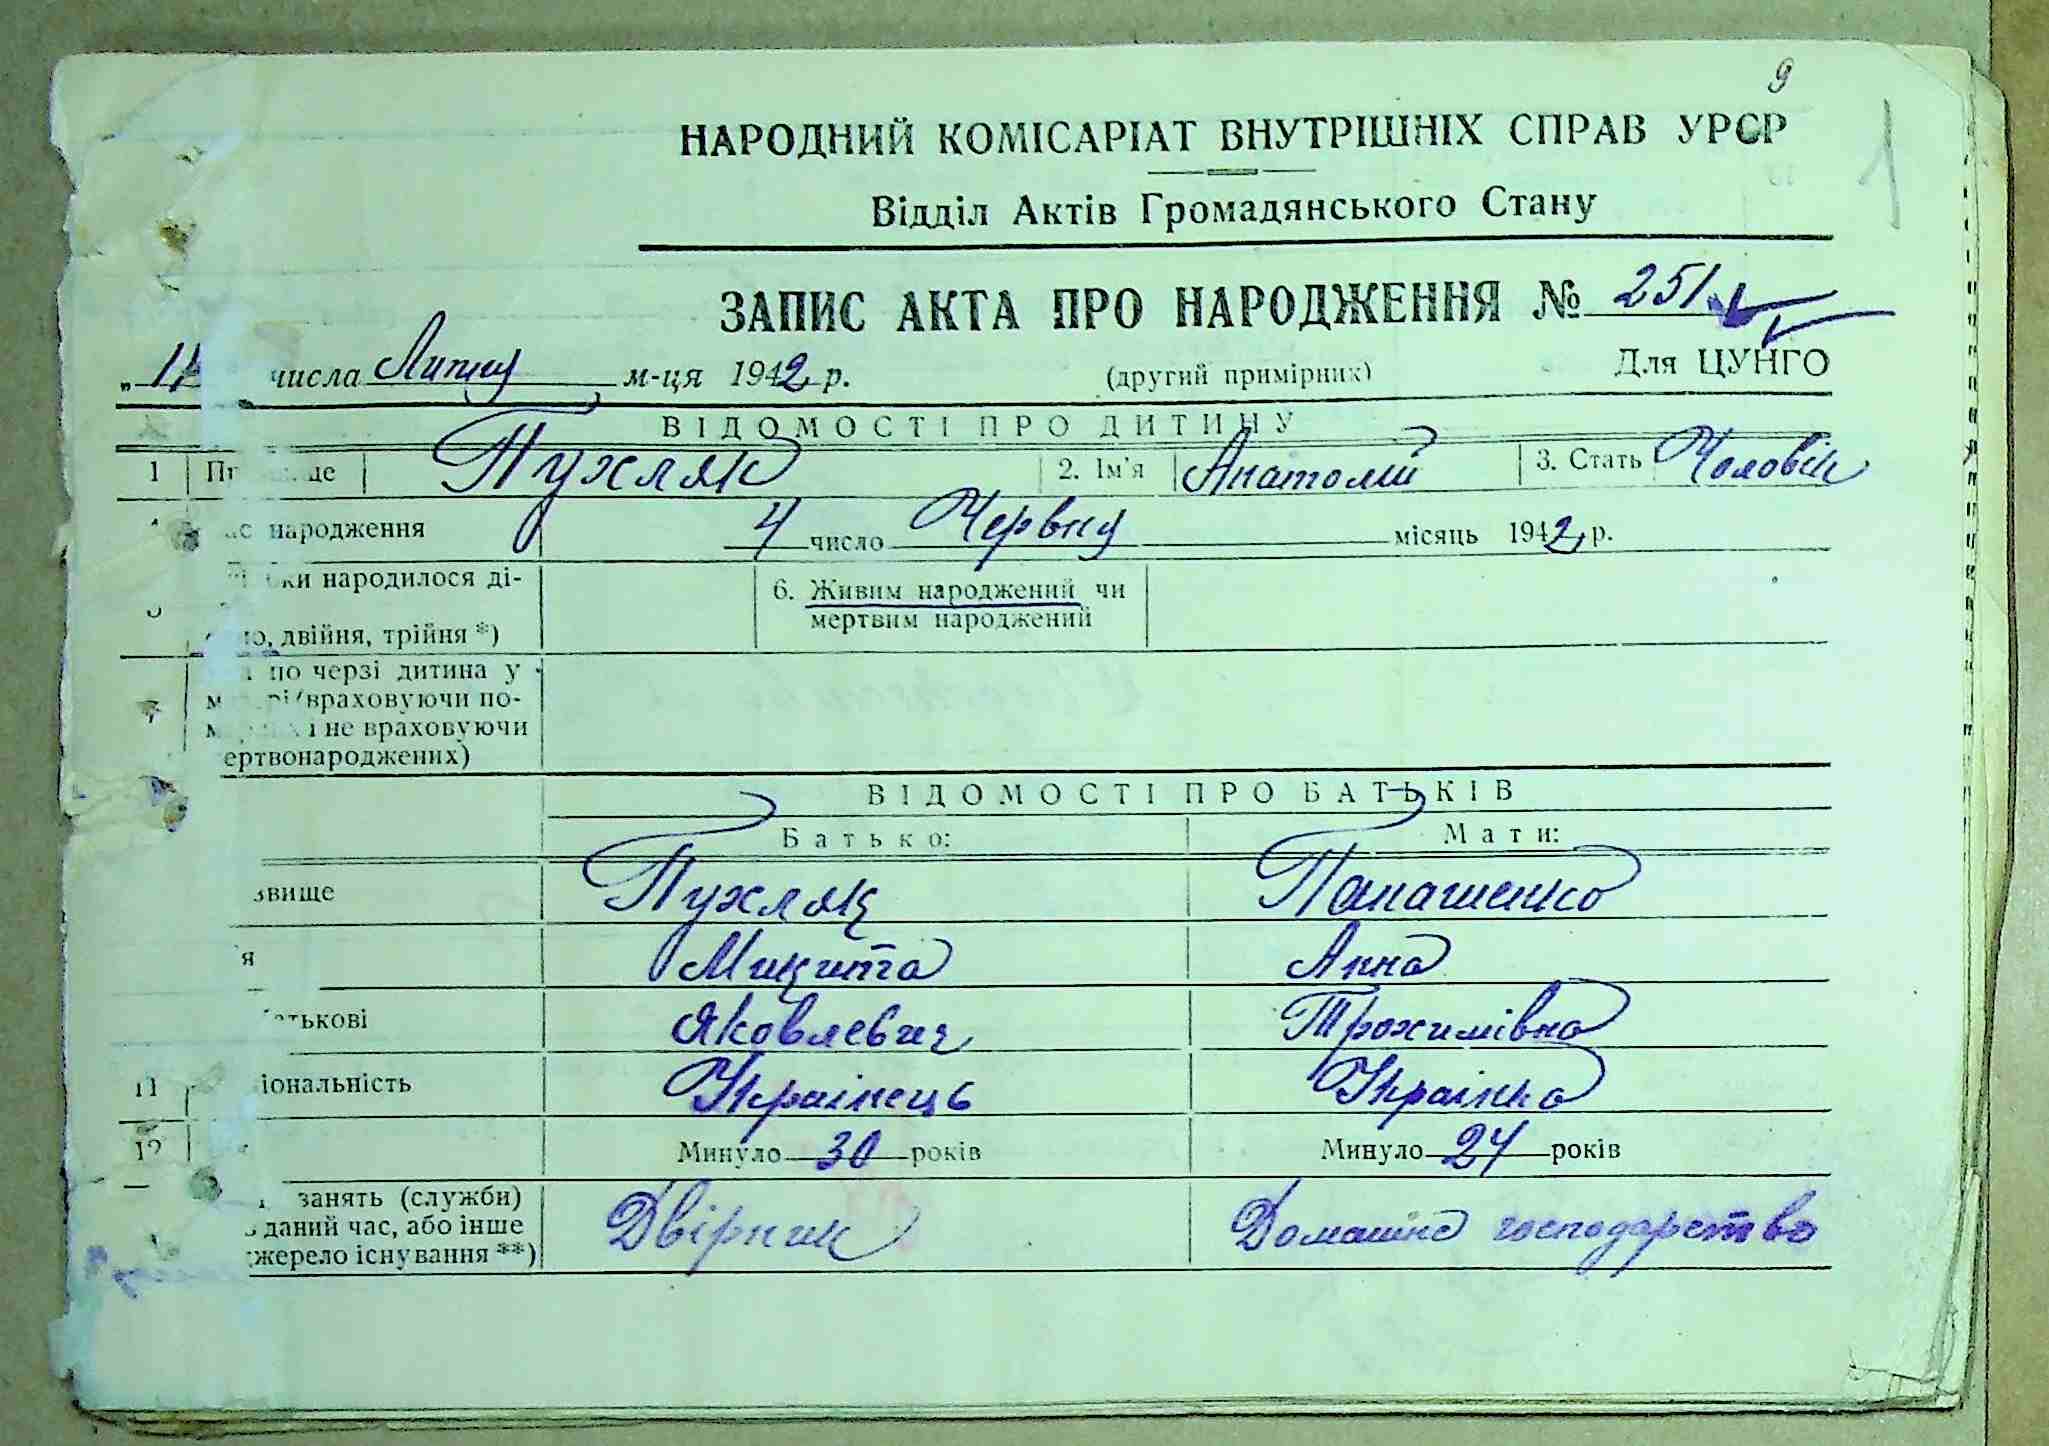 9
1
НАРОДНИЙ КОМІСАРІАТ ВНУТРІШНІХ СПРАВ УРСР
Відділ Актів Громадянського Стану
ЗАПИС АКТА ПРО НАРОДЖЕННЯ № 251
числа м-ця 1942 р. (другий примірник) Для ЦУНГО
ВІДОМОСТІ ПРО ДИТИНУ
1 Пухляк 2. Ім'я Анатолій 3. Стать Чоловік
народження 4 число Червня місяць 1942 р.
народилося ді- 6. Живим народжений чи
двійня, трійня *) мертвим народжений
по черзі дитина у
(враховуючи по-
і не враховуючи
ертвонароджених)
ВІДОМОСТІ ПРО БАТЬКІВ
Батько: Мати:
звище Пухляк Панашенко
я Микита Анна
тькові Яковлевич Трохимівна
11 іональність Українець Українка
12 Минуло 30 років Минуло 24 років
занять (служби)
даний час, або інше Двірник Домашнє господарство
жерело існування **)